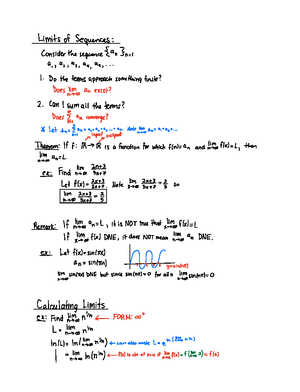 Limits of Sequences:
Consider the sequence {aₙ}ₙ₌₁
a₁, a₂, a₃, a₄, a₅, ...
1. Do the terms approach something finite?
Does lim n→∞ aₙ exist?
2. Can I sum all the terms?
Does Σ aₙ converge?
Theorem: If f: ℝ→ℝ is a function for which f(n)=aₙ and lim x→∞ f(x)=L, then
lim n→∞ aₙ=L.
ex: Find lim n→∞ 2n+3/5n+7.
Let f(x)=2x+3/5x+7. Note lim x→∞ 2x+3/5x+7=2/5 so
lim n→∞ 2n+3/5n+7=2/5
Remark: If lim n→∞ aₙ=L, it is NOT true that lim x→∞ f(x)=L
If lim x→∞ f(x) DNE, it does NOT mean lim n→∞ aₙ DNE.
ex: Let f(x)=sin(πx)
aₙ=sin(πn)
y=sin(πx)
lim x→∞ sin(πx) DNE but since sin(πn)=0 for all n lim n→∞ sin(πn)=0
Calculating Limits
ex: Find lim n→∞ n^(1/n) ← FORM: ∞⁰
L= lim n→∞ n^(1/n)
ln(L)=ln(lim n→∞ n^(1/n)) ← can also write
= lim n→∞ ln(n^(1/n))